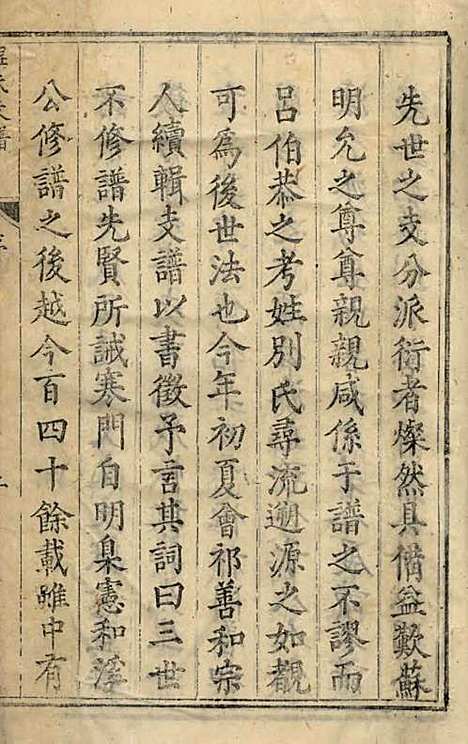 先世之支分派衍者燦然具偹益歎蘇
明允之尊尊親親咸係于譜之不謬而
呂伯恭之考姓別氏尋流遡源之如覩
可爲後世法也今年初夏會祁善和宗
人續輯支譜以書徵予言其詞曰三世
不修譜先賢所誡寒門自明臬憲和溪
公修譜之後越今百四十餘載雖中有